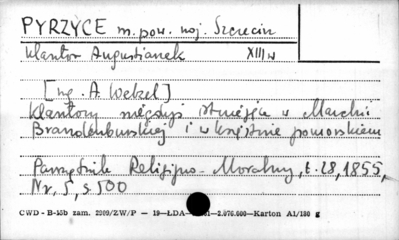 PYRZYCE m. pow. woj. Szczecin
klasztor Augustianek XIII w
[wg. A. Wetzel]
Klasztory niegdyś istniejące w Marchii
Brandenburskiej i w księstwie pomorskiem
Pamiętnik Religijno-Moralny, t. 28, 1855,
Nr. 5, s. 500
CWD - B-15b zam. 2909/ZW/P — 19—ŁDA— -2.070.000—Karton A1/180 g